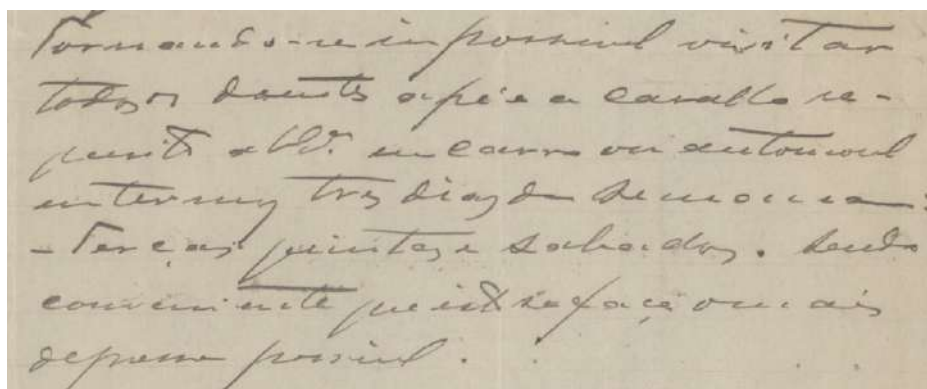 Tornando-se impossivel visitar
todos os doentes a pé e a cavallo re-
quisito a V. um carro ou automovel
em termos tres dias da semana:
- Terças quintas e sabados. Sendo
conveniente que isto se faça o mais
depressa possivel.